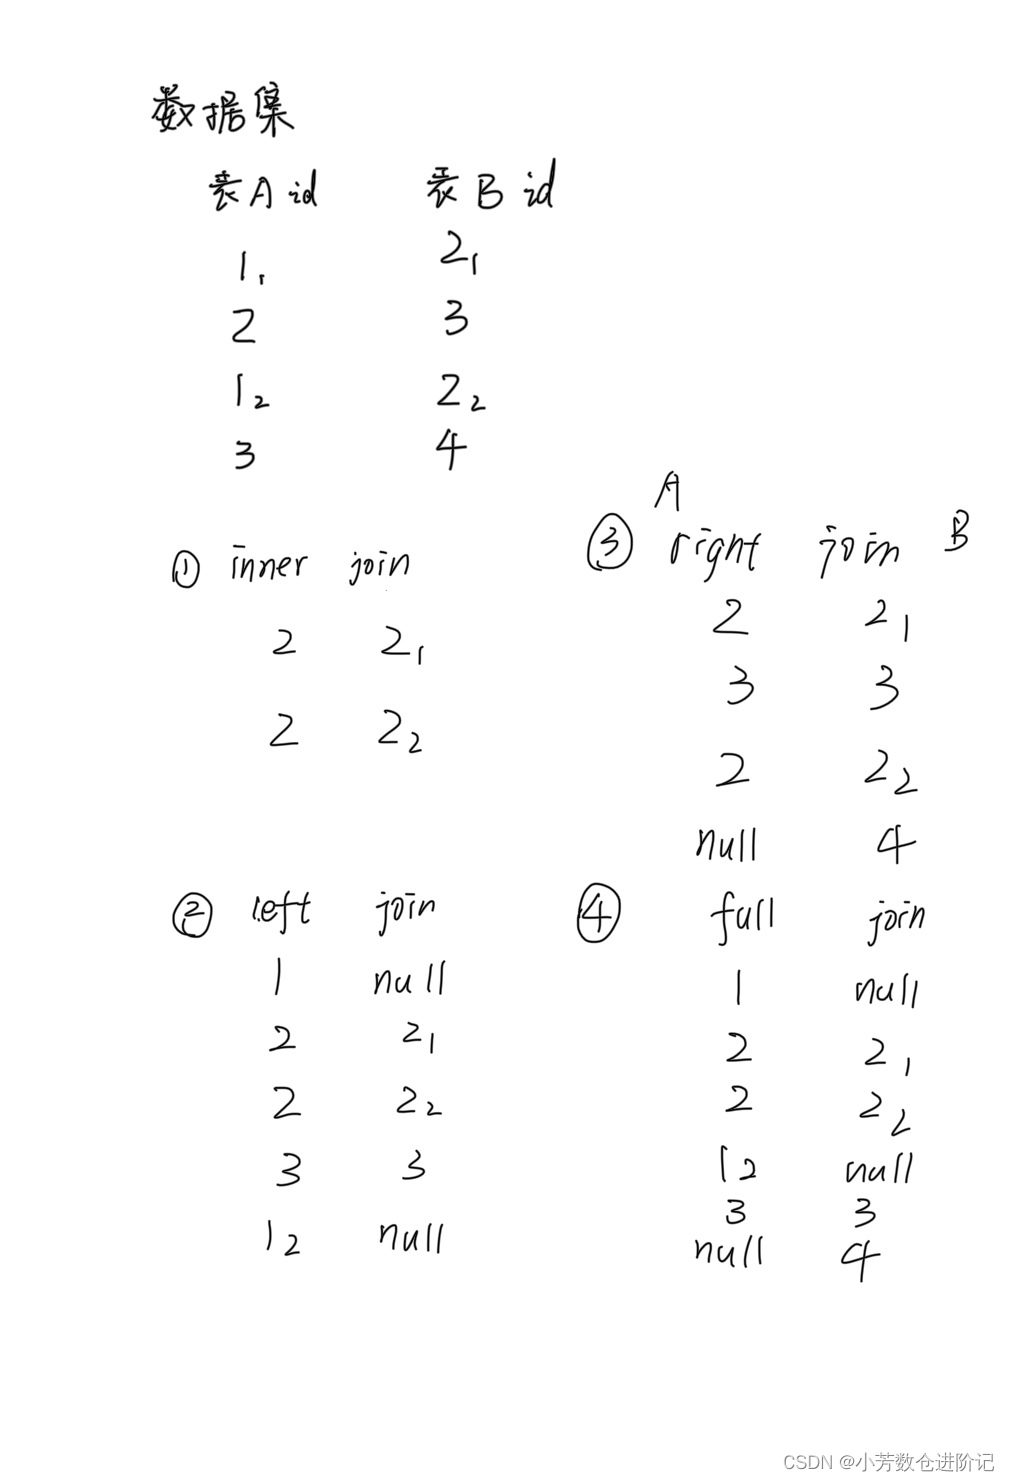 数据集
表A id 表B id
1₁ 2₁
2 3
1₂ 2₂
3 4
① inner join
2 2₁
2 2₂
② left join
1 null
2 2₁
2 2₂
3 3
1₂ null
A
③ right join B
2 2₁
3 3
2 2₂
null 4
④ full join
1 null
2 2₁
2 2₂
1₂ null
3 3
null 4
CSDN @小芳数仓进阶记